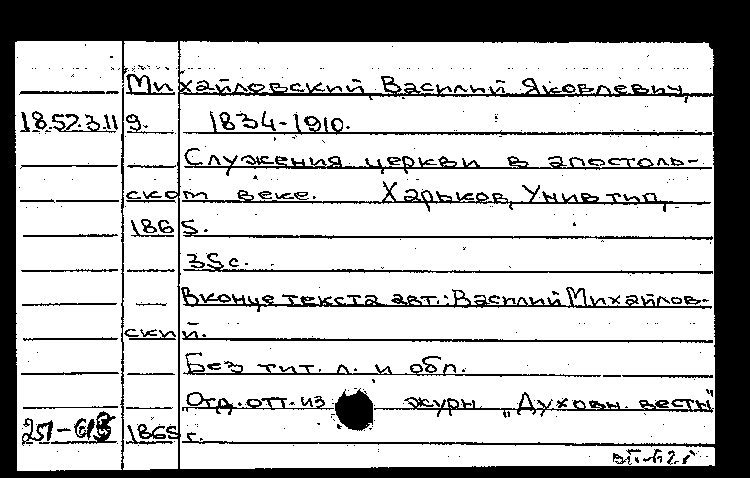 Михайловский, Василий Яковлевич,
18.57.3.119. 1834-1910.
Служения церкви в апостоль-
ском веке. Харьков, Унив тип,
1865.
35 с.
В конце текста авт.: Василий Михайлов-
ский.
Без тит. л. и обл.
Отд. отт. из журн. „Духовн. вестн"
251-618 1865 г.